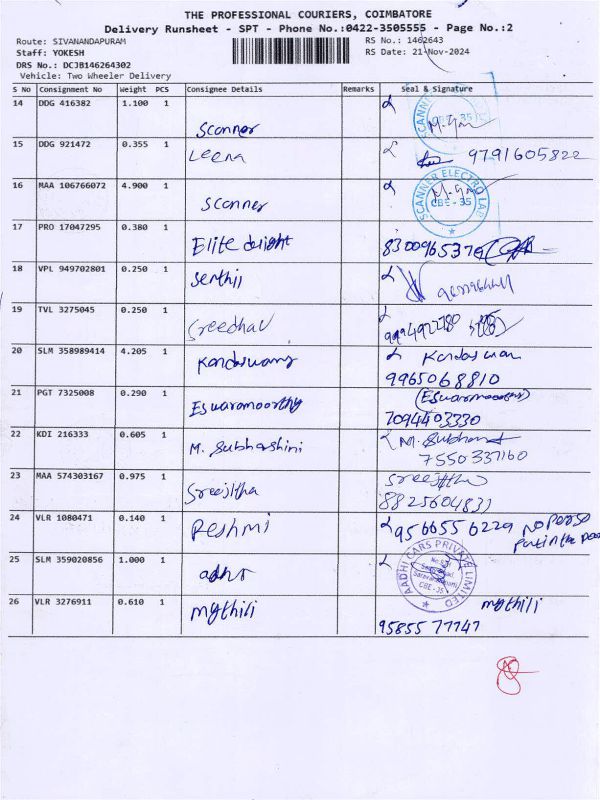 THE PROFESSIONAL COURIERS, COIMBATORE
Delivery Runsheet - SPT - Phone No.:0422-3505555 - Page No.:2
Route: SIVANANDAPURAM RS No.: 1462643
Staff: YOKESH RS Date: 21-Nov-2024
DRS No.: DCJB146264302
Vehicle: Two Wheeler Delivery
S No Consignment No Weight PCS Consignee Details Remarks Seal & Signature
14 DDG 416382 1.100 1 Scanner
15 DDG 921472 0.355 1 Leena 9791605822
16 MAA 106766072 4.900 1 Scanner
SCANNER ELECTRO LAB
CBE - 35
17 PRO 17047295 0.380 1 Elite 
18 VPL 949702801 0.250 1 Senthil
19 TVL 3275045 0.250 1 Sreedhar
20 SLM 358989414 4.205 1 Kandaswamy
9965068810
21 PGT 7325008 0.290 1 Eswaramoorthy
7094403330
22 KDI 216333 0.605 1 M. Subhashini
7550337160
23 MAA 574303167 0.975 1 Sreejitha
24 VLR 1080471 0.140 1 Reshmi 9566556229
25 SLM 359020856 1.000 1
AADHI CARS PRIVATE LIMITED
CBE - 35
26 VLR 3276911 0.610 1 mythili mythili
95855 77747